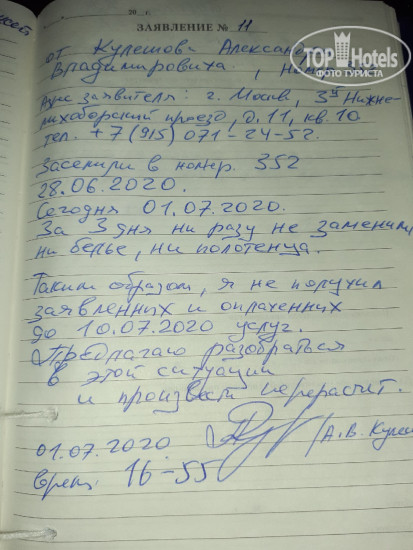 20 г.
ЗАЯВЛЕНИЕ № 11
TOP Hotels
ФОТО ТУРИСТА
от Кулешова Александра
Владимировича.,
Адрес заявителя: г. Москв, 3й Нижне-
лихоборский проезд, д. 11, кв. 10
тел. +7 (915) 071-24-52.
Заселили в номер. 352
28.06.2020.
Сегодня 01.07.2020.
За 3 дня ни разу не заменили
ни белье, ни полотенца.
Таким образом, я не получил
заявленных и оплаченных
до 10.07.2020 услуг.
Предлагаю разобраться
в этой ситуации
и произвести перерасчит.
01.07.2020 /А.В. Куле
время 16-55